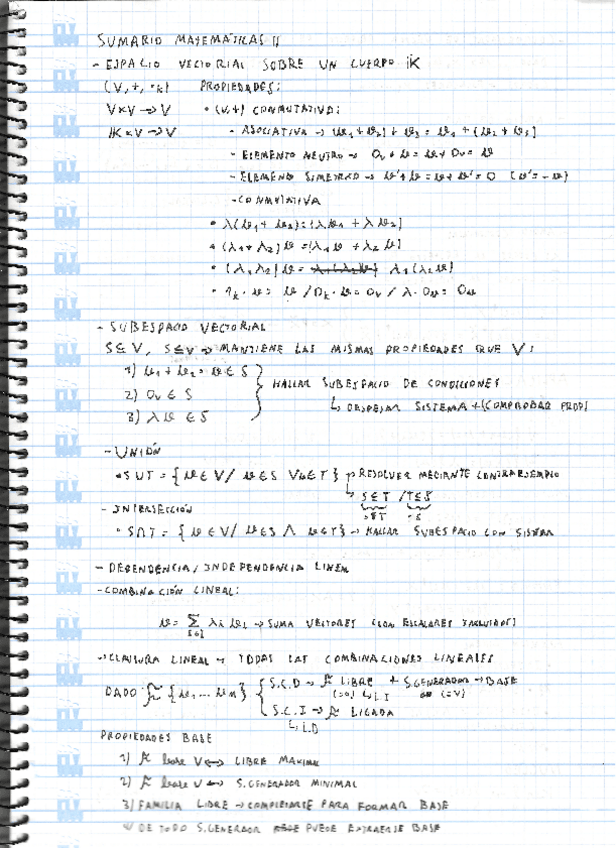 SUMARIO MATEMÁTICAS II
- ESPACIO VECTORIAL SOBRE UN CUERPO IK
(V, +, ·k) PROPIEDADES:
V×V → V • (V,+) CONMUTATIVO:
IK×V → V - ASOCIATIVA → (u₁+u₂)+u₃ = u₁+(u₂+u₃)
- ELEMENTO NEUTRO → 0ᵥ+u = u+0ᵥ = u
- ELEMENTO SIMETRICO → u'+u = u+u' = 0 (u'=-u)
- CONMUTATIVA
• λ(u₁+u₂) = (λu₁+λu₂)
• (λ₁+λ₂)u = (λ₁u+λ₂u)
• (λ₁λ₂)u = λ₁(λ₂u)
• 1ₖ·u = u / 0ₖ·u = 0ᵥ / λ·0ᵥ = 0ᵥ
- SUBESPACIO VECTORIAL
S⊆V, S≤V → MANTIENE LAS MISMAS PROPIEDADES QUE V:
1) u₁+u₂ = u ∈ S
2) 0ᵥ ∈ S HALLAR SUBESPACIO DE CONDICIONES
3) λu ∈ S ↳ DESPEJAR SISTEMA + (COMPROBAR PROP)
- UNIÓN
• SUT = {u∈V / u∈S V u∈T} → RESOLVER MEDIANTE CONTRAEJEMPLO
↳ S⊆T / T⊆S
- INTERSECCIÓN
• S∩T = {u∈V / u∈S ∧ u∈T} → HALLAR SUBESPACIO CON SISTEMA
- DEPENDENCIA / INDEPENDENCIA LINEAL
- COMBINACIÓN LINEAL:
u = Σ λi ui → SUMA VECTORES (CON ESCALARES INCLUIDOS)
→ CLAUSURA LINEAL → TODAS LAS COMBINACIONES LINEALES
DADO F {u₁...uₙ} S.C.D → F LIBRE + S.GENERADOR → BASE
(=0) ↳ L.I (=V)
S.C.I → F LIGADA
↳ L.D
PROPIEDADES BASE
1) F base V ↔ LIBRE MAXIMAL
2) F base V ↔ S.GENERADOR MINIMAL
3) FAMILIA LIBRE → COMPLETARSE PARA FORMAR BASE
4) DE TODO S.GENERADOR PUEDE EXTRAERSE BASE